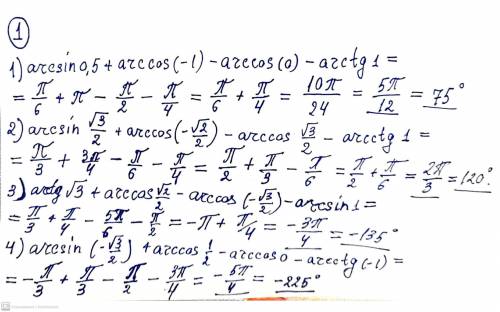 1
1) arcsin 0,5 + arccos(-1) - arccos(0) - arctg 1 =
= π/6 + π - π/2 - π/4 = π/6 + π/4 = 10π/24 = 5π/12 = 75°
2) arcsin √3/2 + arccos(-√2/2) - arccos √3/2 - arcctg 1 =
= π/3 + 3π/4 - π/6 - π/4 = π/2 + π/3 - π/6 = π/2 + π/6 = 2π/3 = 120°.
3) arctg √3 + arccos √2/2 - arccos(-√3/2) - arcsin 1 =
= π/3 + π/4 - 5π/6 - π/2 = -π + π/4 = -3π/4 = -135°
4) arcsin(-√3/2) + arccos 1/2 - arccos 0 - arcctg(-1) =
= -π/3 + π/3 - π/2 - 3π/4 = -5π/4 = -225°